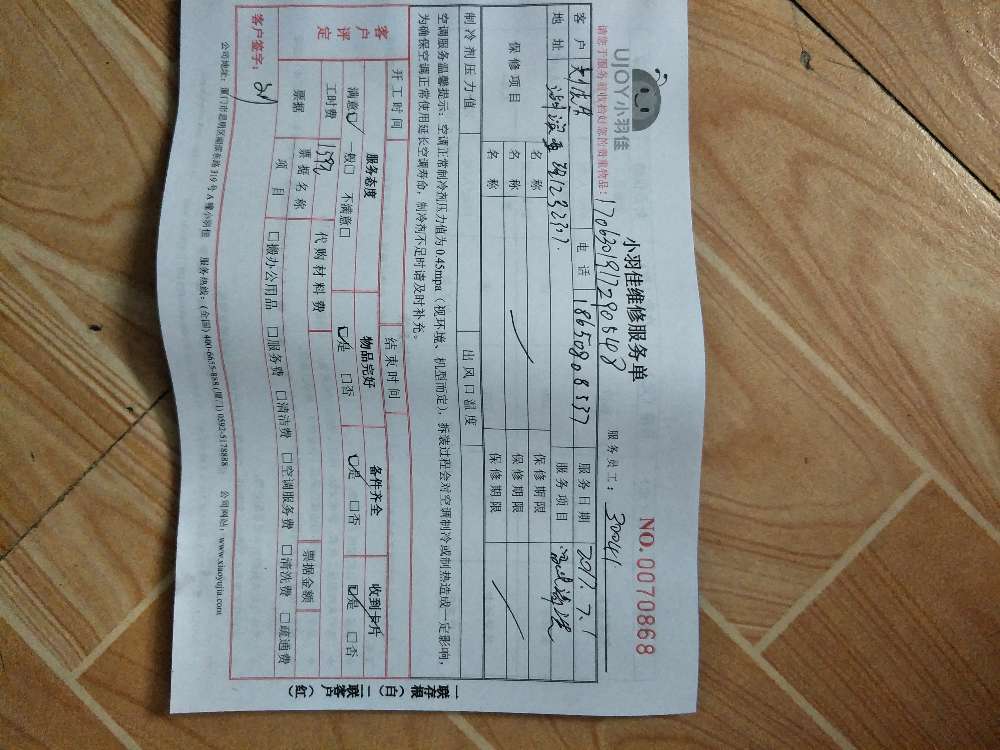 UJOY小羽佳
小羽佳维修服务单
NO. 0070868
请您于服务前收检好您的贵重物品: 1706301917290548 服务员工: 30041
客户 电话 18650808537 服务日期 2017.7.1
地址 服务项目
保修项目 名称 保修期限
名称 保修期限
名称 保修期限
制冷剂压力值 出风口温度
空调服务温馨提示: 空调正常制冷剂压力值为0.45mpa（视环境、机型而定），拆装过程会对空调制冷或制热造成一定影响，
为确保空调正常使用延长空调寿命，制冷剂不足时请及时补充。
开工时间 结束时间
客户评定 服务态度 物品完好 备件齐全 收到卡片
满意☑ 一般□ 不满意□ ☑是 □否 ☑是 □否 ☑是 □否
工时费 代购材料费
票据 票据名称 票据金额
项目 □搬办公用品 □服务费 □清洁费 □空调服务费 □清洗费 □疏通费
客户签字:
公司地址: 厦门市思明区湖滨东路319号A幢小羽佳 服务热线: (全国) 400-6655-888 (厦门) 0592-5178888 公司网站: www.xiaoyujia.com
一联存根（白）二联客户（红）